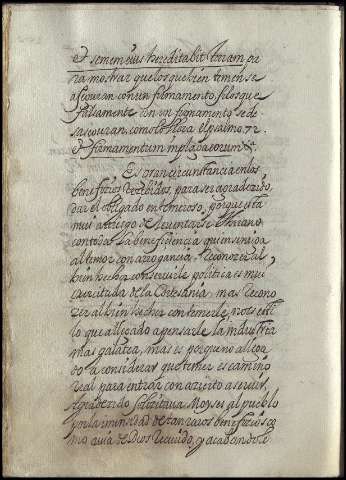 et semen eius hereditabit terram pa
ra mostrar que los que bien temen se
aseguran con un firmamento, y los que
falsamente con un firmamento se de
saseguran, como lo llora el psalmo 72.
et firmamentum in plaga eorum &.
Es gran circunstancia en los
beneficios recibidos, para ser agradecido,
dar el obligado en temeroso, porque esta
mui a riesgo de
con toda la beneficencia quien se niega
al temor con arrogancia. Reconocer al
bien hechor con servirle politica es mui
de la Cortesania; mas recono
zer al bien hechor con temerle, no es esti
lo que a llegado a pensarle la industria
mas galatea, mas es porque no a llega
do a considerar que temer es camino
real para entrar con acierto a servir.
Agradecido solicitaua Moyses al pueblo
por la inmensidad de tan raros beneficios co
mo auia de Dios recivido, y acabando